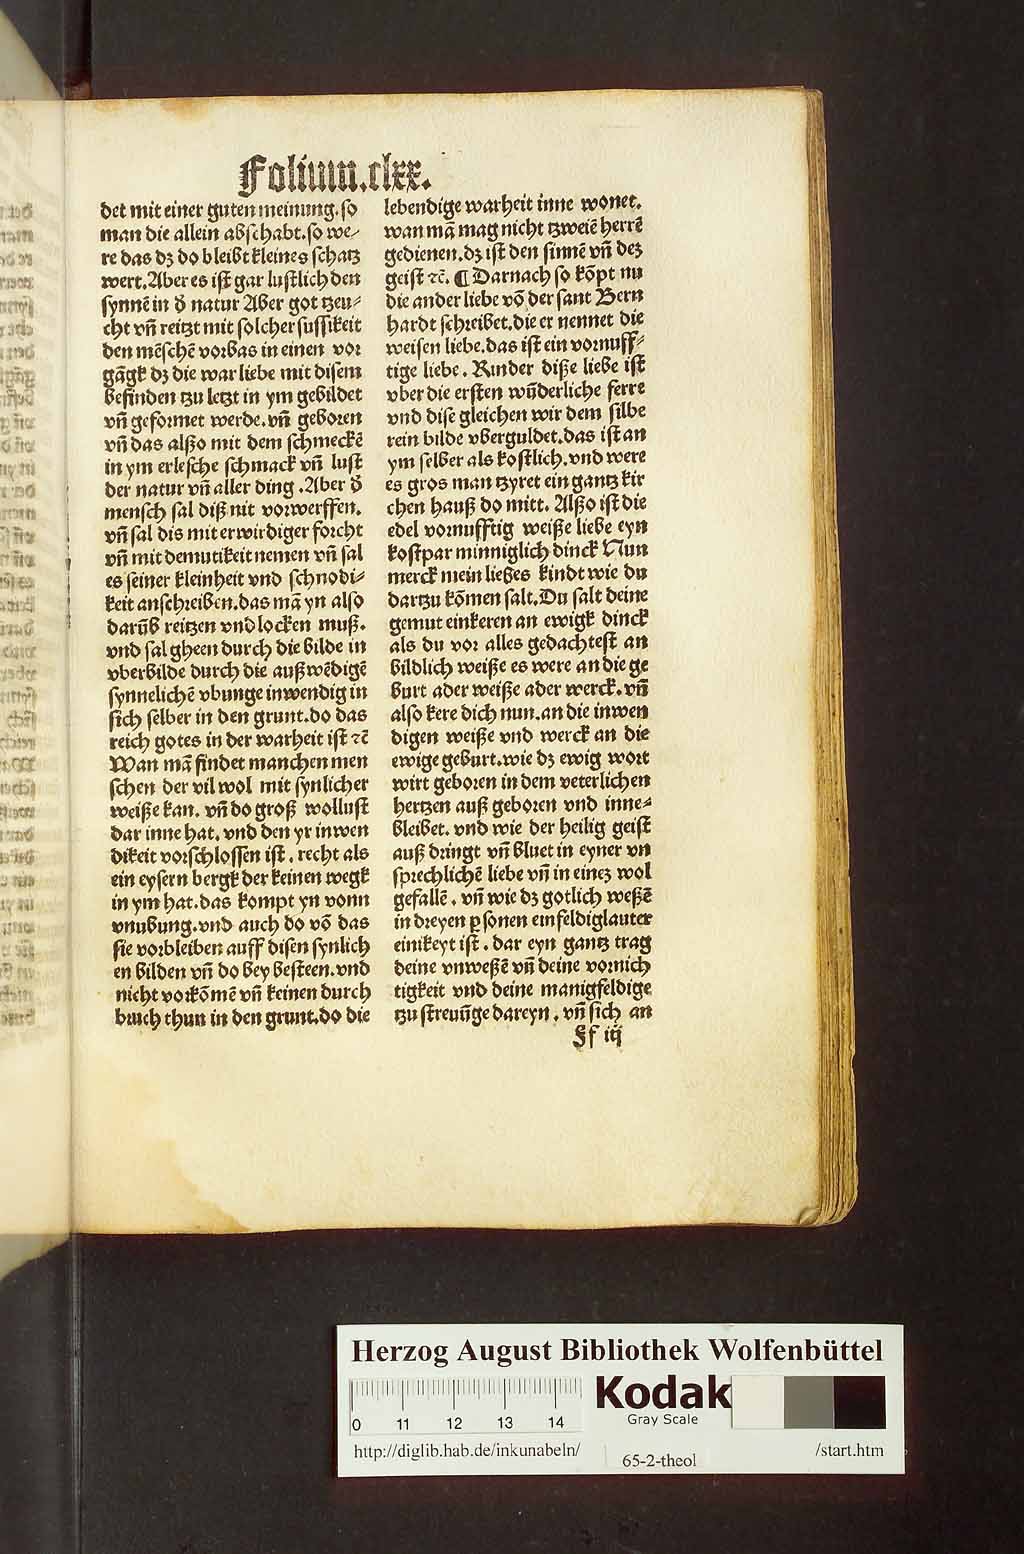 Folium.clxx.
det mit einer guten meinung. so
man die allein abschabt. so we⸗
re das dz do bleibt kleines schatz
wert. Aber es ist gar lustlich den
synnē in d̕ natur Aber got tzeu⸗
cht vn̄ reitzt mit solcher sussikeit
den mēschē vorbas in einen vor
gāgk dz die war liebe mit disem
befinden tzu letzt in ym gebildet
vn̄ geformet werde. vn̄ geboren
vn̄ das alßo mit dem schmeckē
in ym erlesche schmack vn̄ lust
der natur vn̄ aller ding. Aber d̕
mensch sal diß nit vorwerffen.
vn̄ sal dis mit erwirdiger forcht
vn̄ mit demutikeit nemen vn̄ sal
es seiner kleinheit vnd schnodi⸗
keit anschreiben. das mā yn also
darūb reitzen vnd locken muß.
vnd sal gheen durch die bilde in
vberbilde durch die außwēdigē
synnelichē vbunge inwendig in
sich selber in den grunt. do das
reich gotes in der warheit ist ⁊c̄
Wan mā findet manchen men
schen der vil wol mit synlicher
weiße kan. vn̄ do groß wollust
dar inne hat. vnd den yr inwen
dikeit vorschlossen ist. recht als
ein eysern bergk der keinen wegk
in ym hat. das kompt yn vonn
vnubung. vnd auch do vō das
sie vorbleiben auff disen synlich
en bilden vn̄ do bey besteen. vnd
nicht vorkōmē vn̄ keinen durch
bruch thun in den grunt. do die
lebendige warheit inne wonet.
wan mā mag nicht tzweiē herrē
gedienen. dz ist den sinnē vn̄ dez
geist ⁊c̄. ¶ Darnach so kōpt nu
die ander liebe vō der sant Bern
hardt schreibet. die er nennet die
weisen liebe. das ist ein vornuff⸗
tige liebe. Kinder diße liebe ist
vber die ersten wūderliche ferre
vnd dise gleichen wir dem silbe
rein bilde vberguldet. das ist an
ym selber als kostlich. vnd were
es gros man tzyret ein gantz kir
chen hauß do mitt. Alßo ist die
edel vornufftig weiße liebe eyn
kostpar minniglich dinck Nun
merck mein liebes kindt wie du
dartzu kōmen salt. Du salt deine
gemut einkeren an ewigk dinck
als du vor alles gedachtest an
bildlich weiße es were an die ge
burt ader weiße ader werck. vn̄
also kere dich nun. an die inwen
digen weiße vnd werck an die
ewige geburt. wie dz ewig wort
wirt geboren in dem veterlichen
hertzen auß geboren vnd inne⸗
bleibet. vnd wie der heilig geist
auß dringt vn̄ bluet in eyner vn
sprechlichē liebe vn̄ in einez wol
gefallē. vn̄ wie dz gotlich weßē
in dreyen ꝑsonen einfeldiglauter
einikeyt ist. dar eyn gantz trag
deine vnweßē vn̄ deine vornich
tigkeit vnd deine manigfeldige
tzu streuūge dareyn. vn̄ sich an
Ff iij
Herzog August Bibliothek Wolfenbüttel
0 11 12 13 14
Kodak
Gray Scale
http://diglib.hab.de/inkunabeln/ 65-2-theol /start.htm